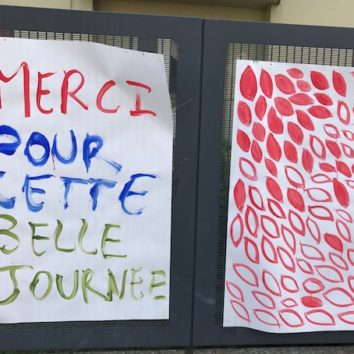 MERCI
POUR
CETTE
BELLE
JOURNÉE